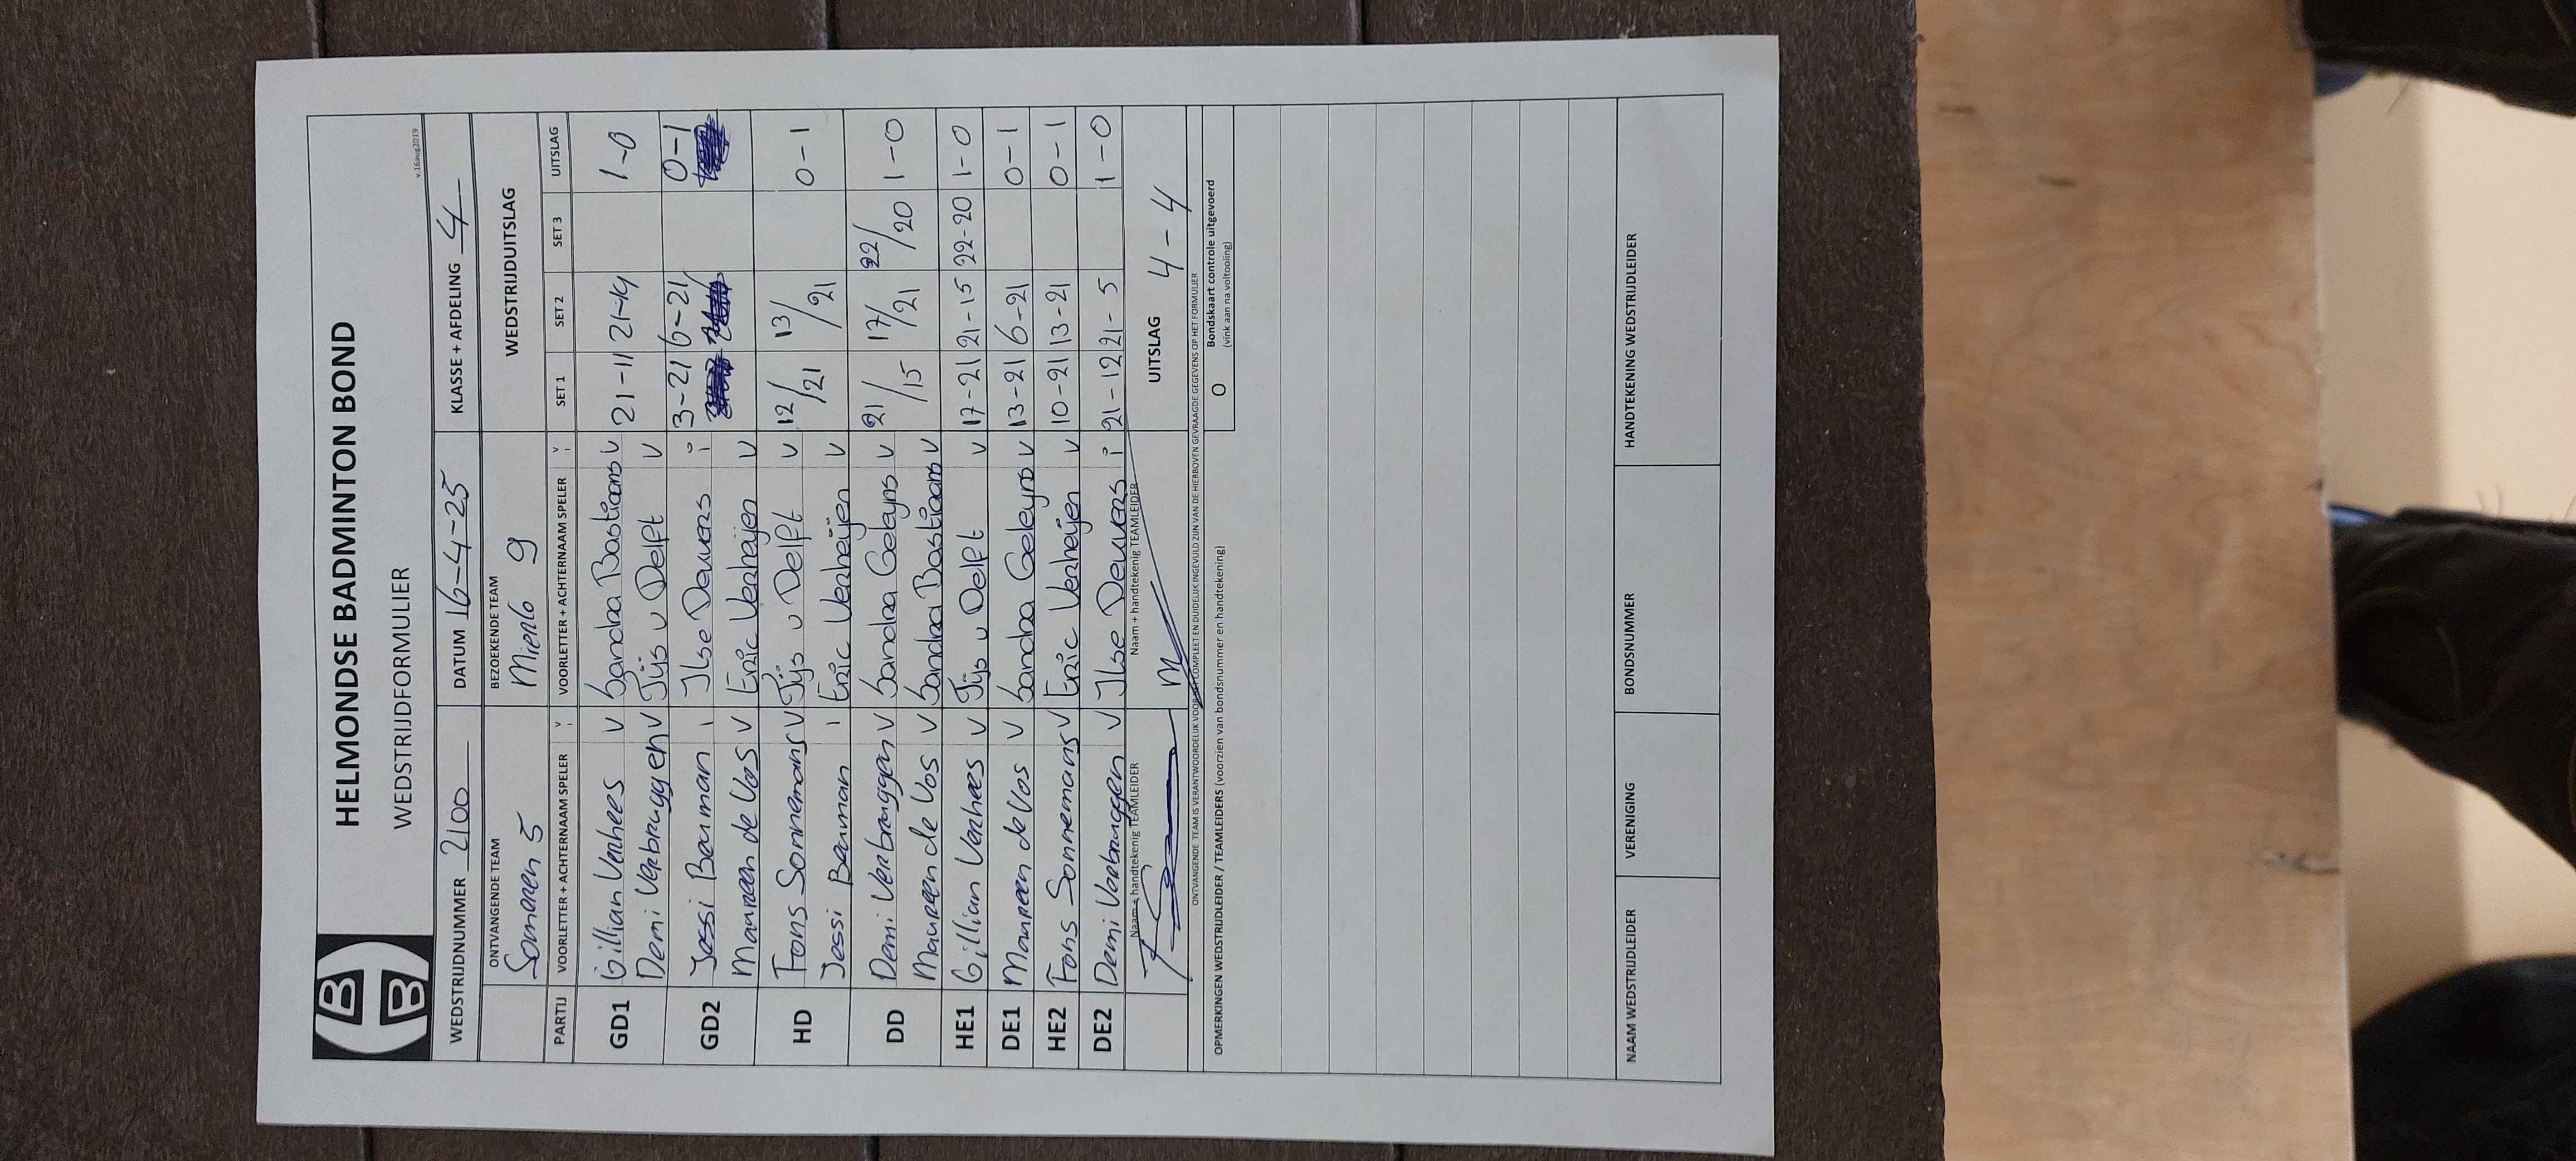 HELMONDSE BADMINTON BOND
WEDSTRIJDFORMULIER
v.16aug2019
WEDSTRIJDNUMMER 2100 DATUM 16-4-25 KLASSE + AFDELING 4
ONTVANGENDE TEAM BEZOEKENDE TEAM WEDSTRIJDUITSLAG
Someren 5 Mierlo 9
PARTIJ VOORLETTER + ACHTERNAAM SPELER V I VOORLETTER + ACHTERNAAM SPELER V I SET 1 SET 2 SET 3 UITSLAG
GD1 Gillian Verhees V Sandra Bastiaans V 21-11 21-14 1-0
Demi Verbruggen V Tijs v Delft V
GD2 Jessi Bouman I Ilse Deuvers i 3-21 6-21 0-1
Maureen de Vos V Eric Verheijen V
HD Fons Sonnemans V Tijs v Delft V 12/21 13/21 0-1
Jessi Bouman I Eric Verheijen V
DD Demi Verbruggen V Sandra Geleyns V 21/15 17/21 22/20 1-0
Maureen de Vos V Sandra Bastiaans V
HE1 Gillian Verhees V Tijs v Delft V 17-21 21-15 22-20 1-0
DE1 Maureen de Vos V Sandra Geleyns V 13-21 6-21 0-1
HE2 Fons Sonnemans V Eric Verheijen V 10-21 13-21 0-1
DE2 Demi Verbruggen V Ilse Deuvers i 21-12 21-5 1-0
Naam + handtekenig TEAMLEIDER Naam + handtekenig TEAMLEIDER UITSLAG 4-4
ONTVANGENDE TEAM IS VERANTWOORDELIJK VOOR COMPLEET EN DUIDELIJK INGEVULD ZIJN VAN DE HIERBOVEN GEVRAAGDE GEGEVENS OP HET FORMULIER
OPMERKINGEN WEDSTRIJDLEIDER / TEAMLEIDERS (voorzien van bondsnummer en handtekening) O Bondskaart controle uitgevoerd
(vink aan na voltooiing)
NAAM WEDSTRIJDLEIDER VERENIGING BONDSNUMMER HANDTEKENING WEDSTRIJDLEIDER